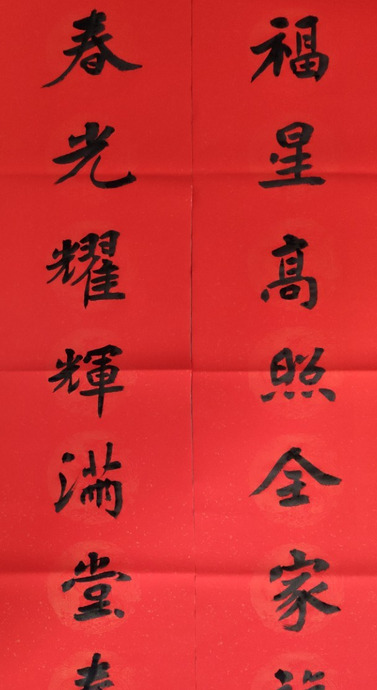 福星高照全家
春光耀輝滿堂春